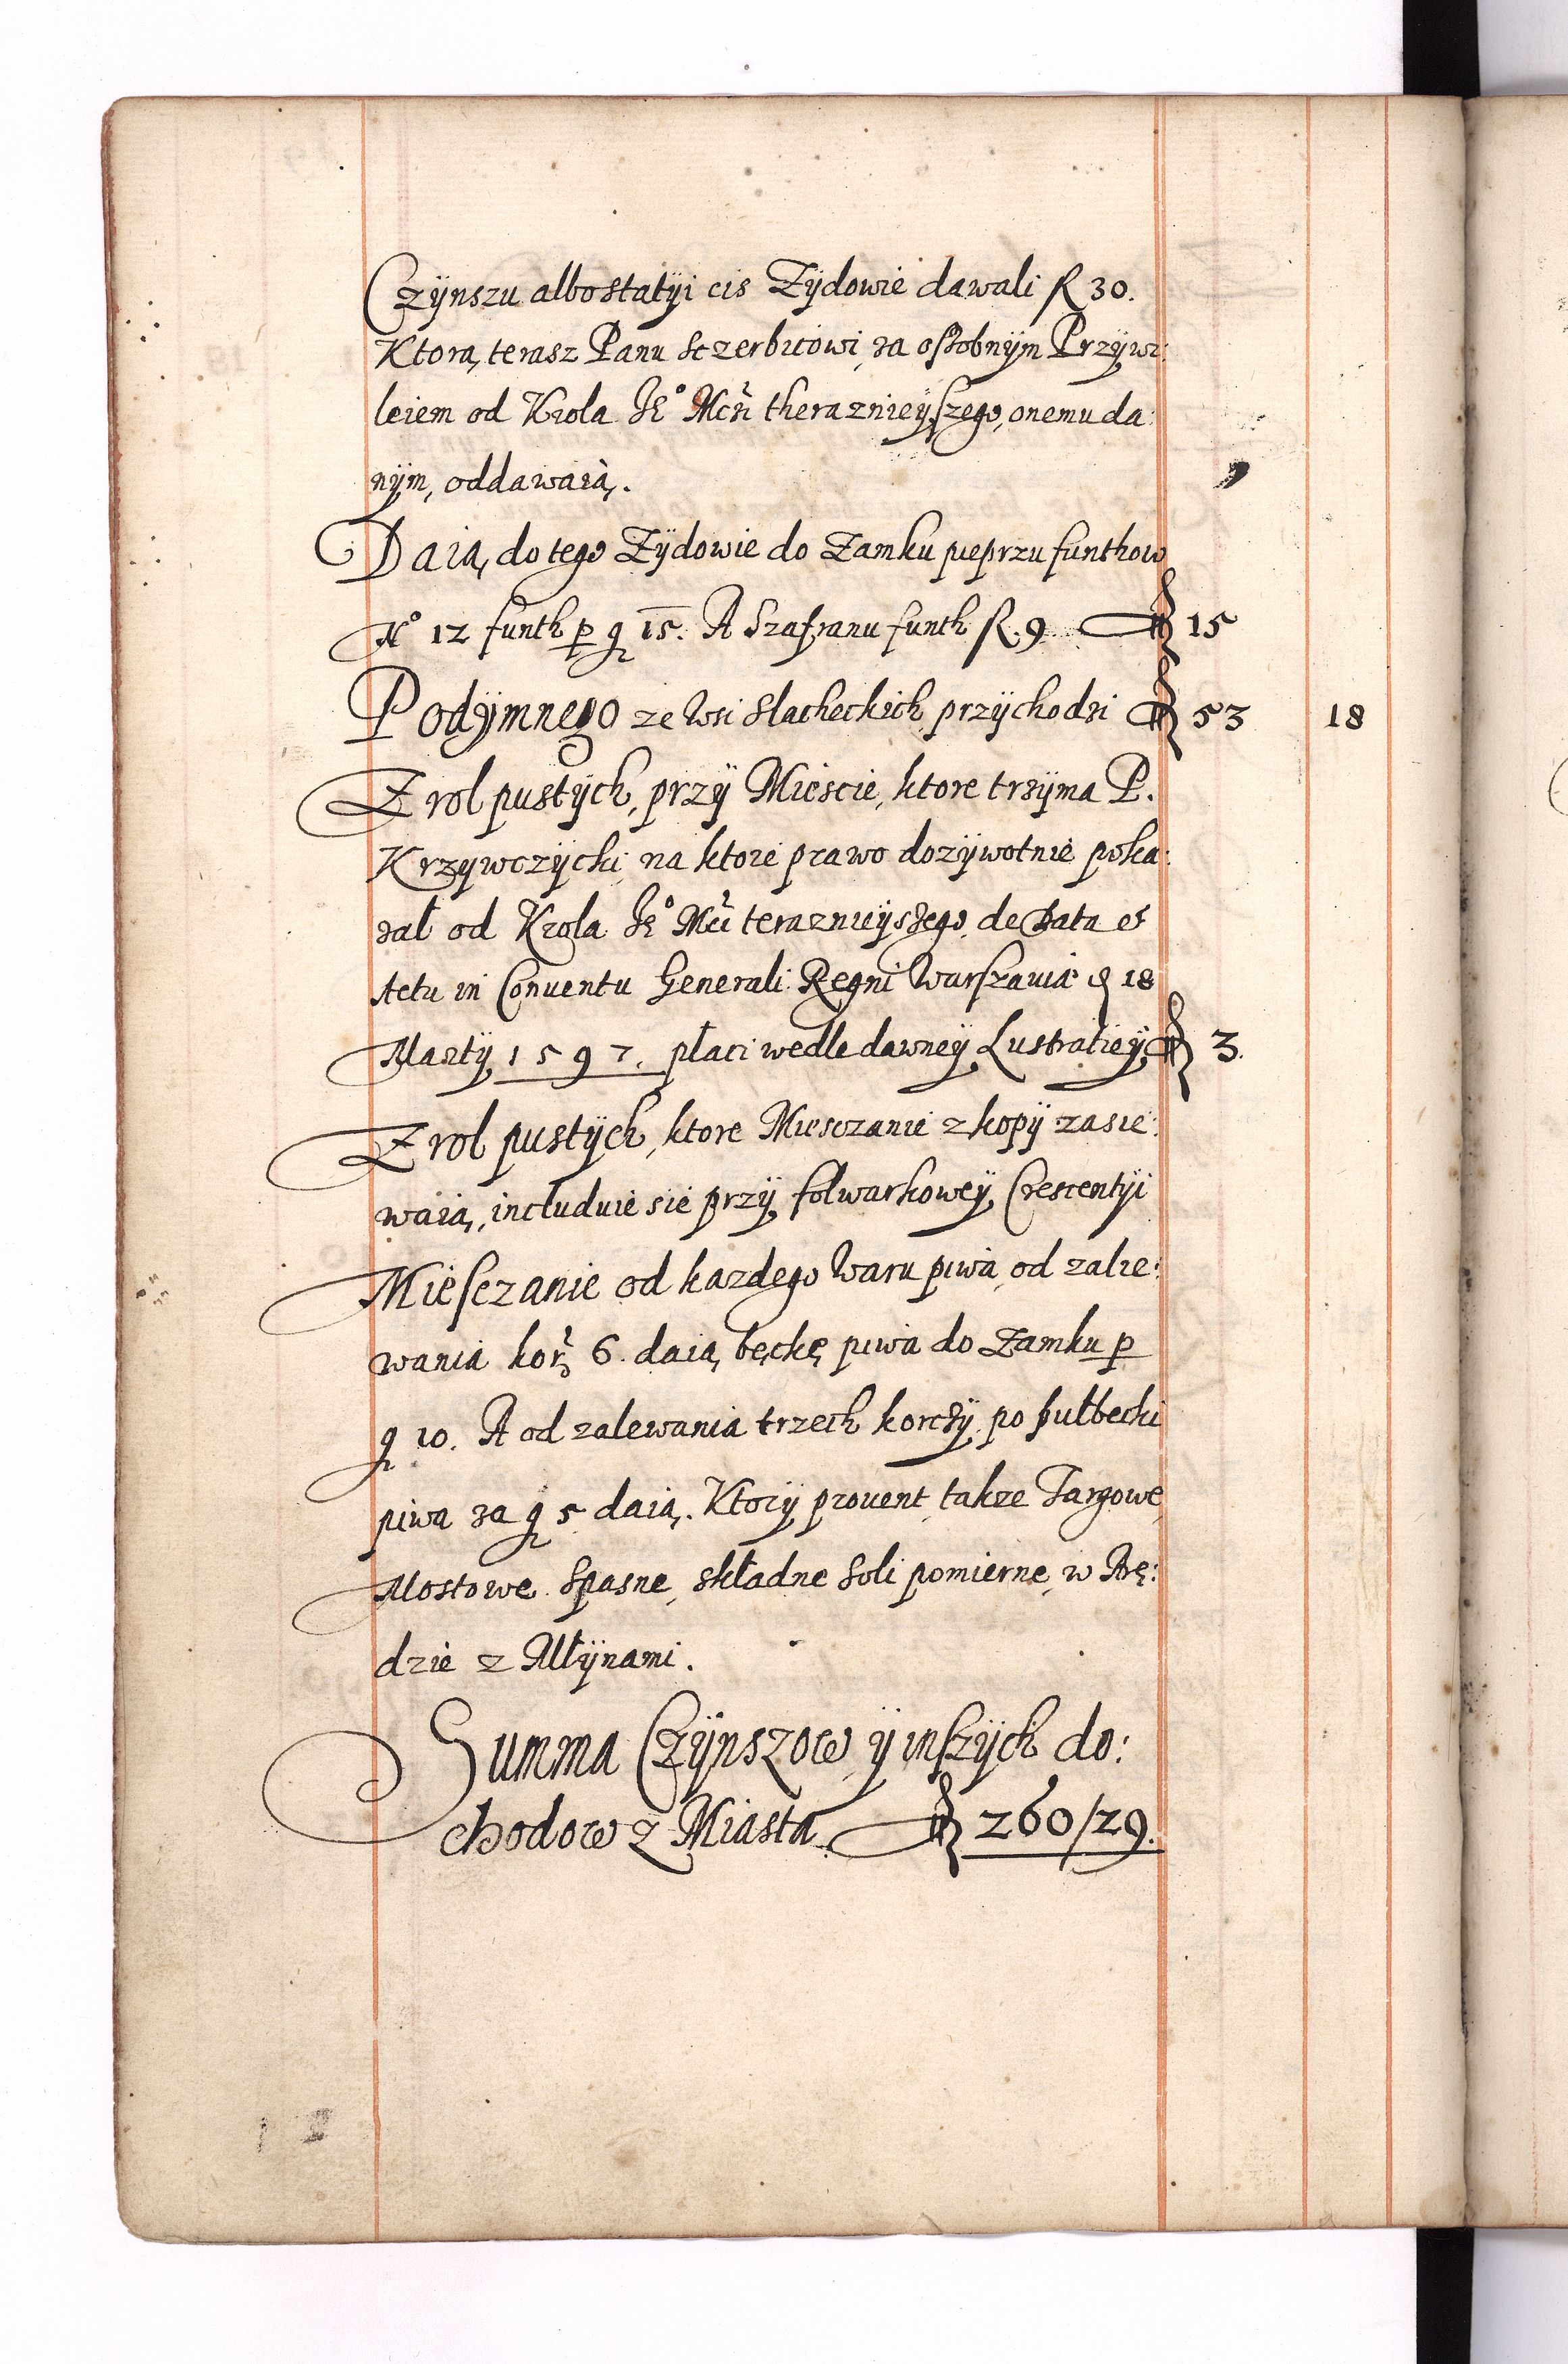 Czÿnszu albo statÿi cis Zÿdowie dawali R 30.
Ktorą terasz Panu Sczerbicowi, za osobnÿm Przÿwi:
leiem od Krola Je° Mci therazniejszego, onemu da:
nÿm, oddawaią.
Daią do tego Zÿdowie do Zamku pieprzu funthow
N° 12 funth p g 15. A Szafranu funth R. 9 15
Podÿmnego ze Wsi Slacheckich przÿchodzi 53 18
Z rol pustÿch, przÿ Miescie, ktore trzÿma P.
Krzÿwczÿcki na ktore prawo dozÿwotnie poka:
zal od Krola Je° Mci teraznieÿszego de Data et
Actu in Conventu Generali Regni Warszaviæ d 18
Martÿ 1597. płaci wedle dawneÿ Lustratieÿ 3.
Z rol pustÿch, ktore Miesczanie z kopÿ zasie:
waią, includuie sie przÿ folwarkoweÿ Crescentÿi
Miesczanie od kazdego Waru piwa od zale:
wania kor: 6. daią beckę piwa do Zamku p
g 10. A od zalewania trzech korczÿ po pułbecki
piwa za g 5 daią. Ktorÿ provent, takze Targowe,
Mostowe Spasne, składne Soli pomierne, w Arę:
dzie z Młÿnami.
Summa Czÿnszow ÿ inszÿch do:
chodow z Miasta 260/29.